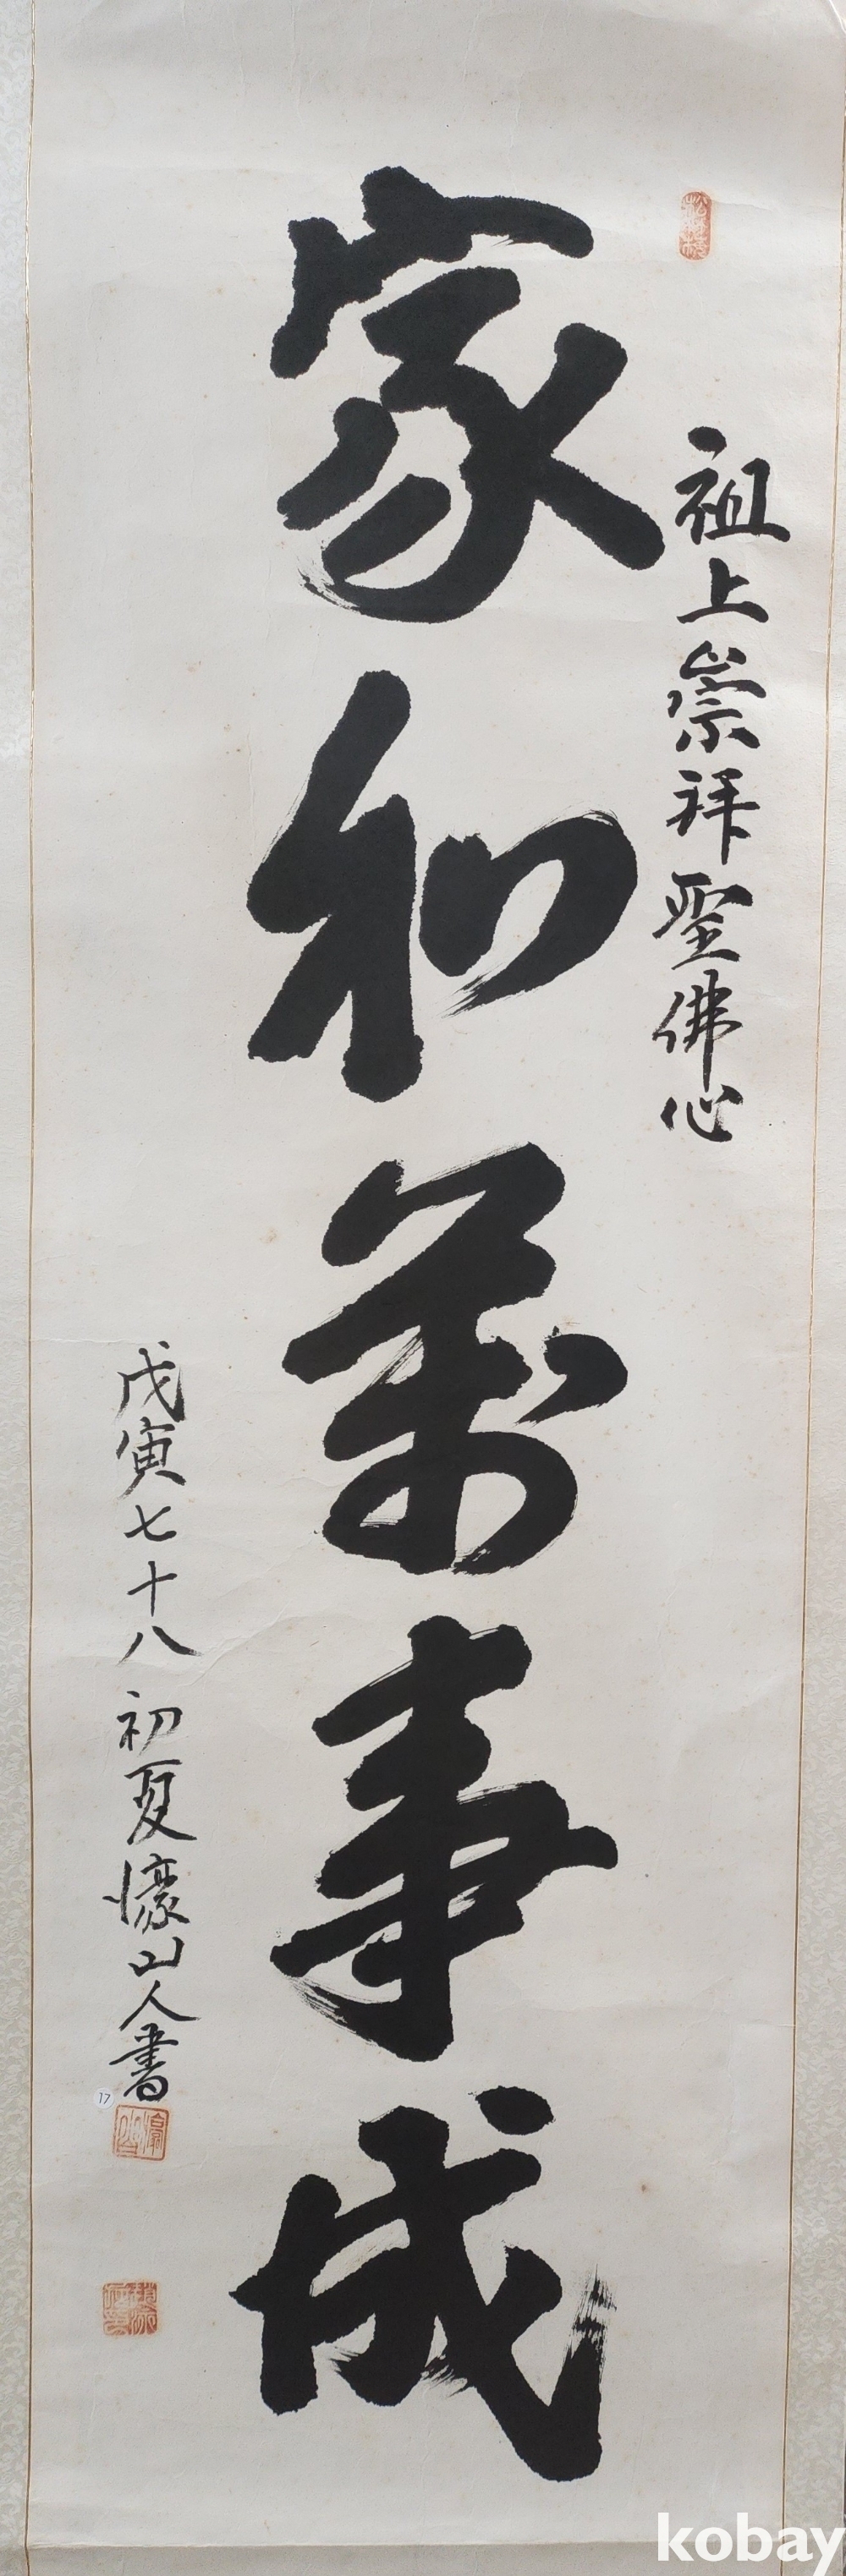 祖上崇拜聖佛心
家和萬事成
戊寅七十八初夏濠山人書
17
kobay